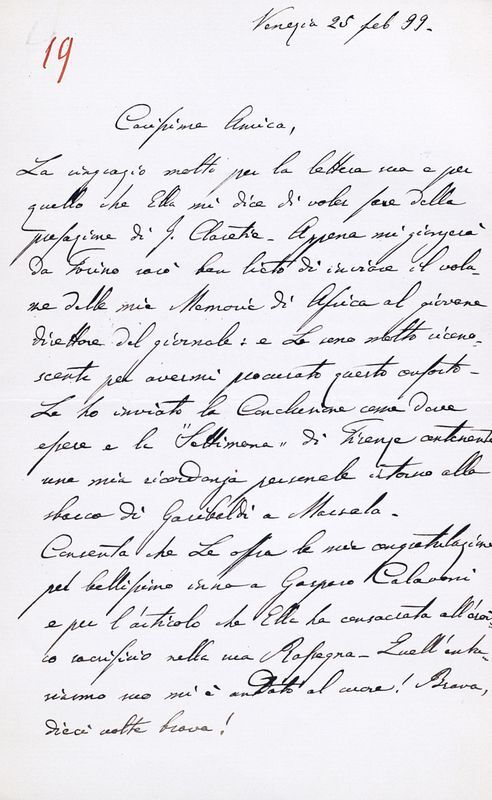 Venezia 25 feb 99.
19
Carissima Amica,
La ringrazio molto per la lettera sua e per
quello che Ella mi dice di voler fare della
prefazione di J. Claretie. Appena mi giungerà
da Torino sarò ben lieto di inviare il volu-
me delle mie Memorie di Africa al giovane
direttore del giornale: e Le sono molto ricono-
scente per avermi procurato questo conforto.
Le ho inviato la Conclusione come dove
epere e la "Settimana" di Firenze contenente
una mia ricordanza personale intorno allo
sbarco di Garibaldi a Marsala.
Consenta che Le offra le mie congratulazioni
pel bellissimo inno a Gaspare
e per l'articolo che Ella ha consacrato all'eroi-
co sacrificio nella sua Rassegna. Quell'entu-
siasmo suo mi è andato al cuore! Brava,
dieci volte brava!